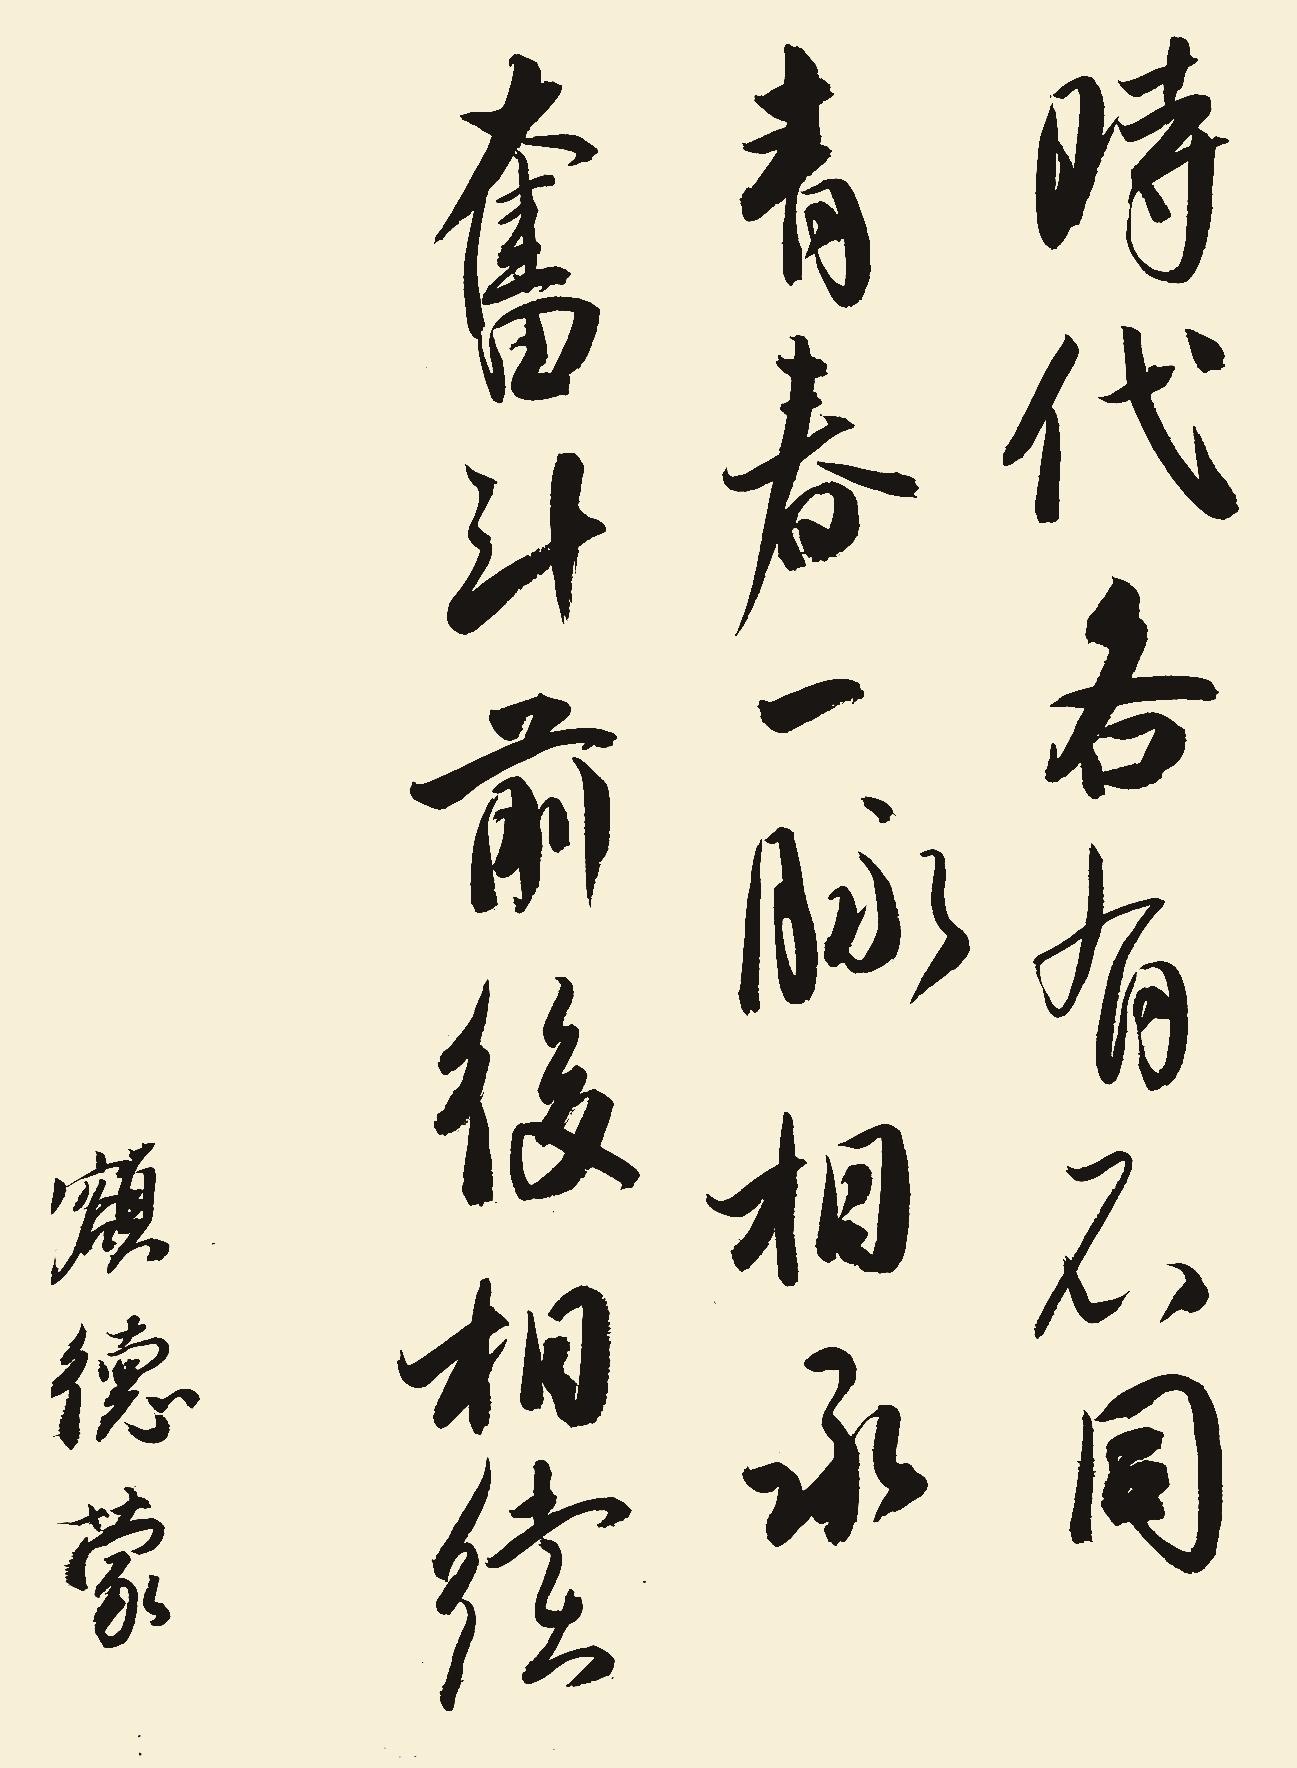 時代各有不同
青春一脉相承
奮斗前後相續
額德蒙